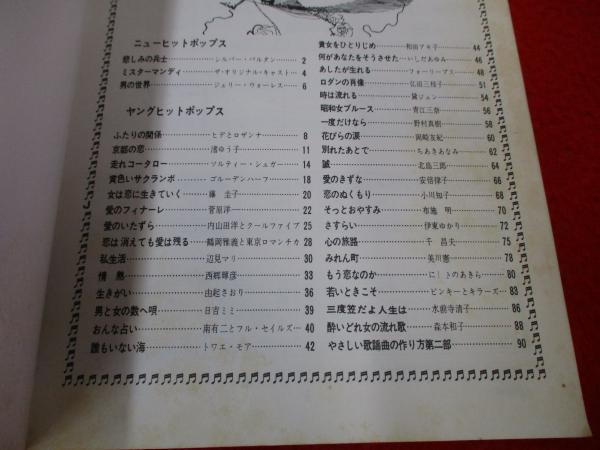 ニューヒットポップス
悲しみの兵士……シルバー・バルタン……2
ミスターマンディ……ザ・オリジナル・キャスト……4
男の世界……ジェリー・ウォーレス……6
ヤングヒットポップス
ふたりの関係……ヒデとロザンナ……8
京都の恋……渚ゆう子……11
走れコータロー……ソルティー・シュガー……14
黄色いサクランボ……ゴールデンハーフ……18
女は恋に生きていく……藤 圭子……20
愛のフィナーレ……菅原洋一……22
愛のいたずら……内山田洋とクールファイブ……25
恋は消えても愛は残る……鶴岡雅義と東京ロマンチカ……28
私生活……辺見マリ……30
情 熱……西郷輝彦……33
生きがい……由起さおり……36
男と女の数へ唄……日吉ミミ……39
おんな占い……南有二とフル・セイルズ……40
誰もいない海……トワエ・モア……42
貴女をひとりじめ……和田アキ子……44
何があなたをそうさせた……いしだあゆみ……46
あしたが生れる……フォーリーブス……48
ロダンの肖像……弘田三枝子……51
時は流れる……黛ジュン……54
昭和女ブルース……青江三奈……56
一度だけなら……野村真樹……58
花びらの涙……岡崎友紀……60
別れたあとで……ちあきあなみ……62
誠……北島三郎……64
愛のきずな……安倍律子……66
恋のぬくもり……小川知子……68
そっとおやすみ……布施 明……70
さすらい……伊東ゆかり……72
心の旅路……千 昌夫……75
みれん町……美川憲一……78
もう恋なのか……にしきのあきら……80
若いときこそ……ピンキーとキラーズ……83
三度笠だよ人生は……水前寺清子……86
酔いどれ女の流れ歌……森本和子……88
やさしい歌謡曲の作り方第二部……90